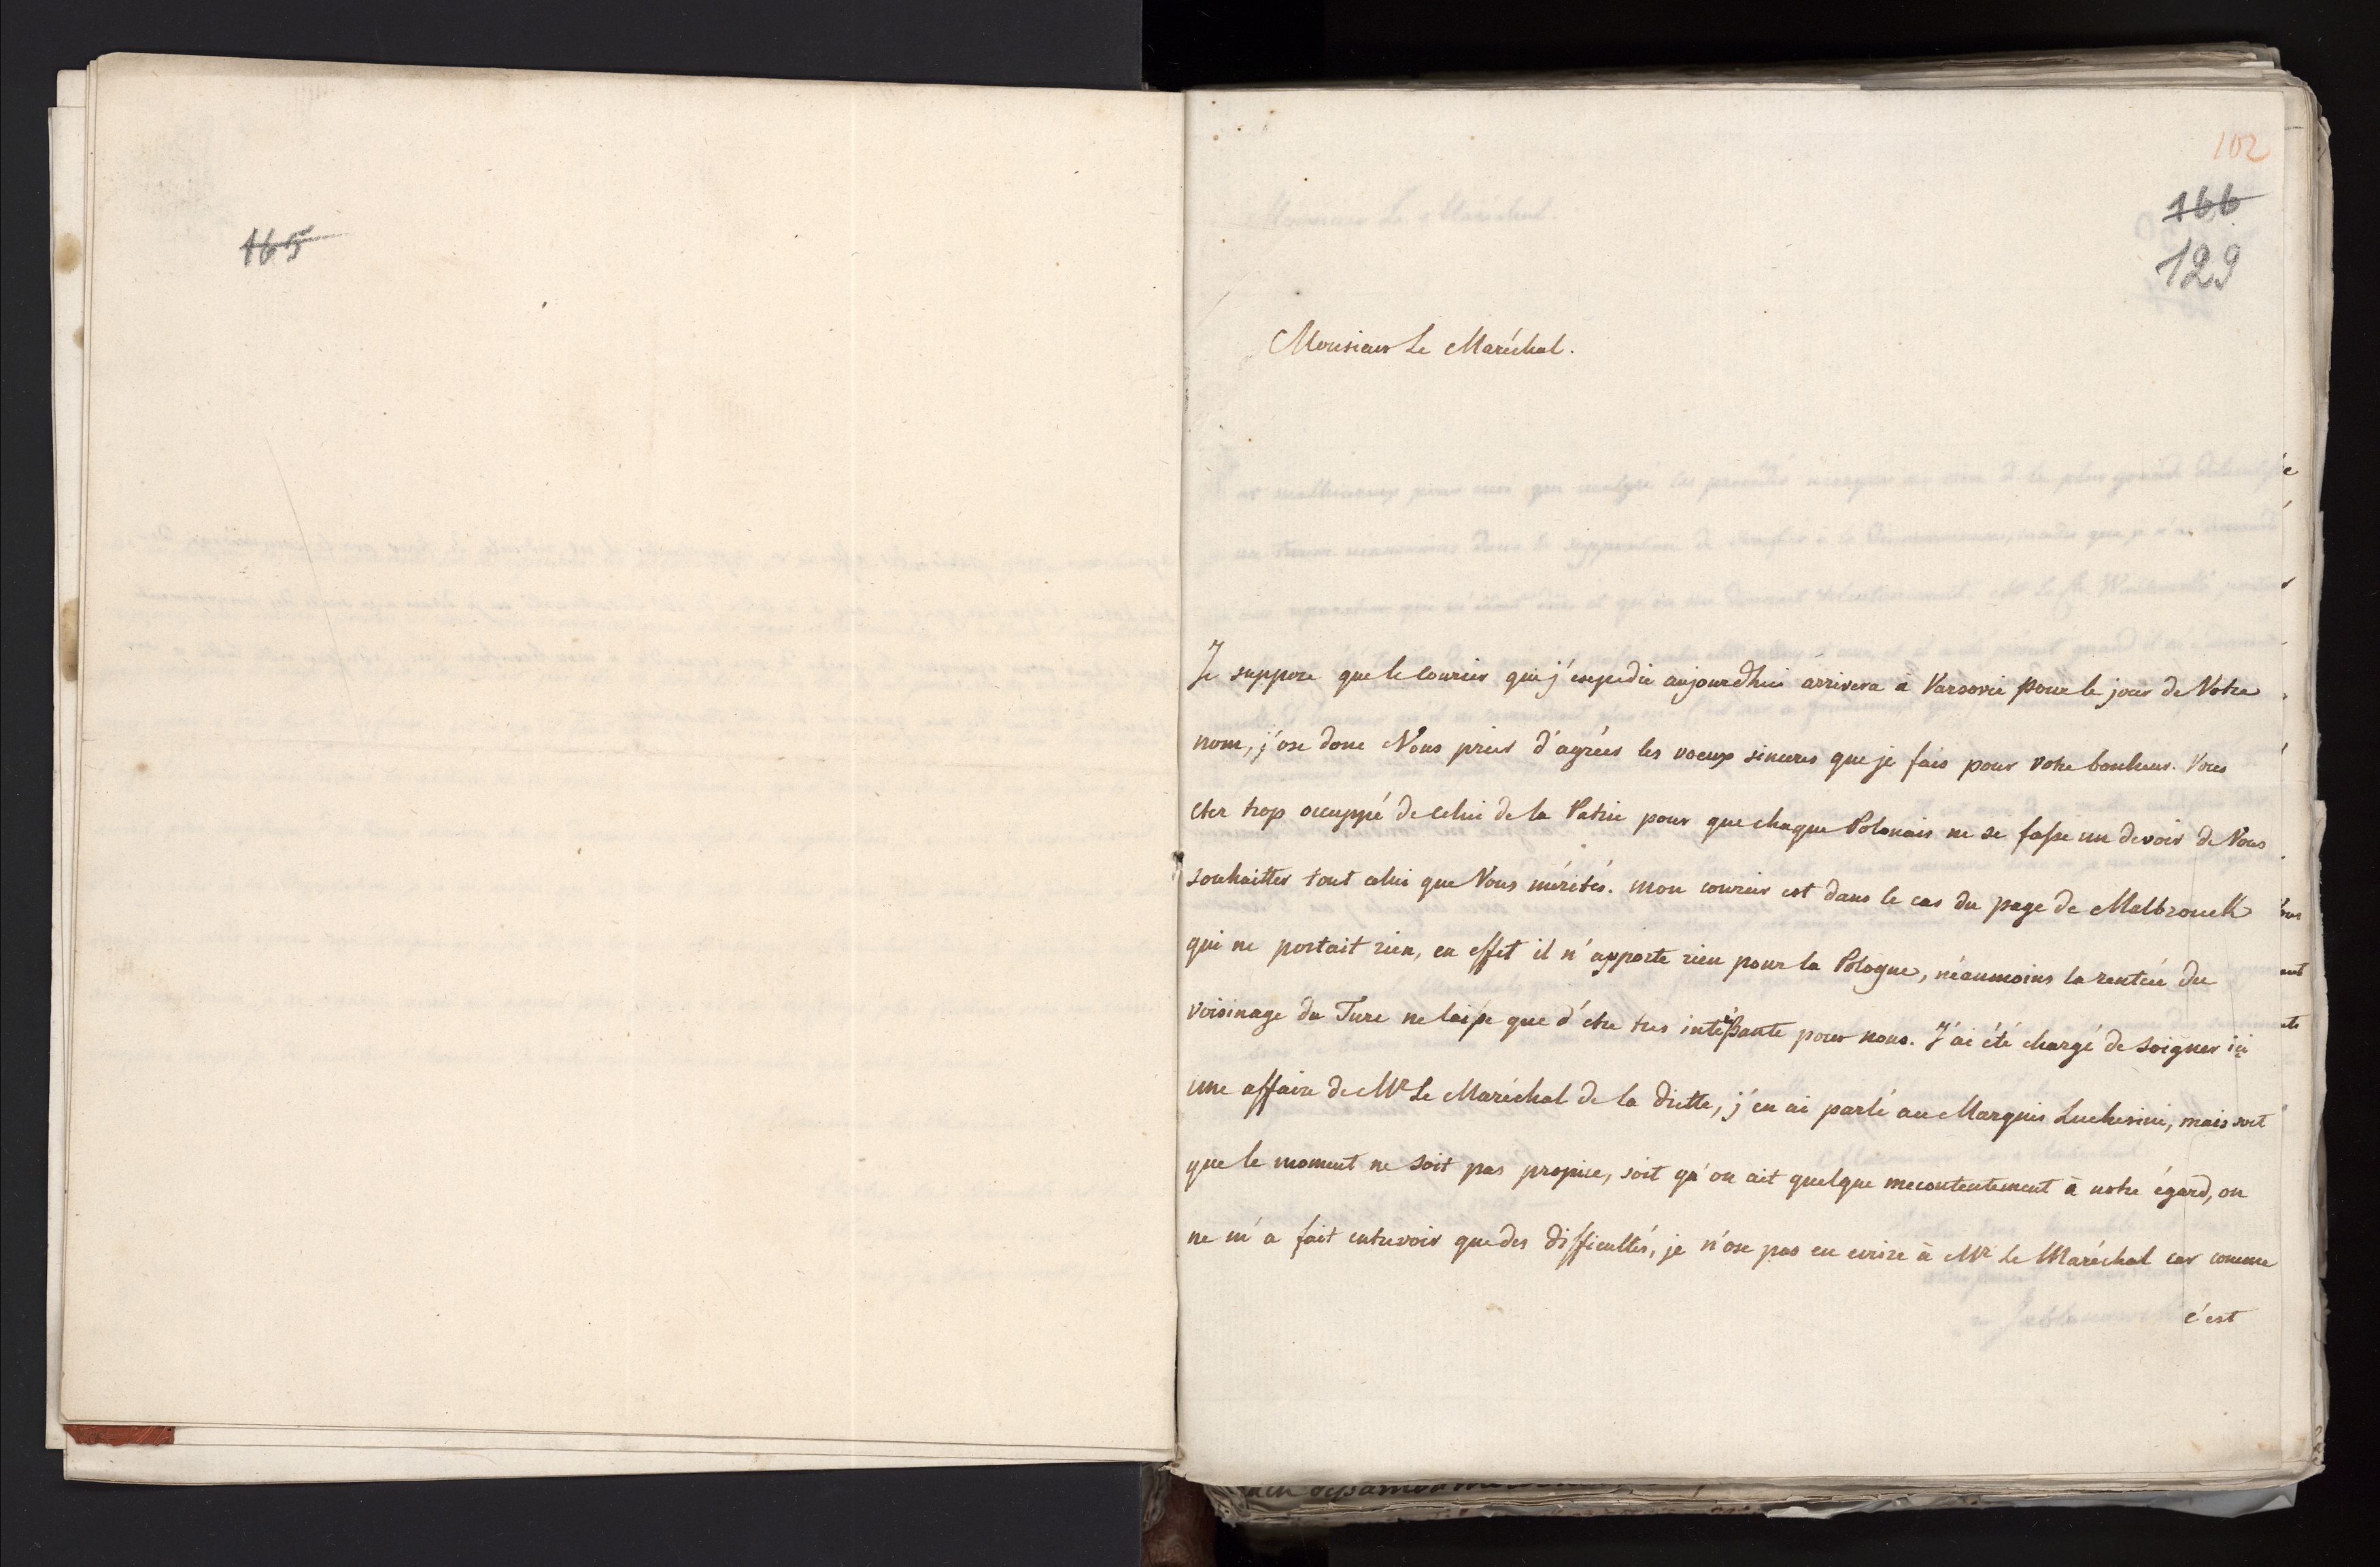 165
102
166
129
Monsieur Le Maréchal.
Je suppose que le courier que j'expedie aujourdhui arrivera à Varsovie pour le jour de Votre
nom, j'ose donc Vous prier d'agréer les voeux sinceres que je fais pour votre bonheur. Vous
etes trop occuppé de celui de la Patrie pour que chaque Polonais ne se fasse un devoir de Vous
souhaitter tout celui que Vous mérités. mon courier est dans le cas du page de Malbrouck
qui ne portait rien, en effet il n'apporte rien pour la Pologne, néanmoins la rentrée du
voisinage du Turc ne laisse que d'etre tres intéressante pour nous. J'ai été chargé de soigner ici
une affaire de Mr Le Maréchal de la Diette, j'en ai parlé au Marquis Luchesini, mais soit
que le moment ne soit pas propice, soit qu'on ait quelque mecontentement à notre égard, on
ne m'a fait entrevoir que des difficultés, je n'ose pas en ecrire à Mr Le Maréchal car comme
c'est